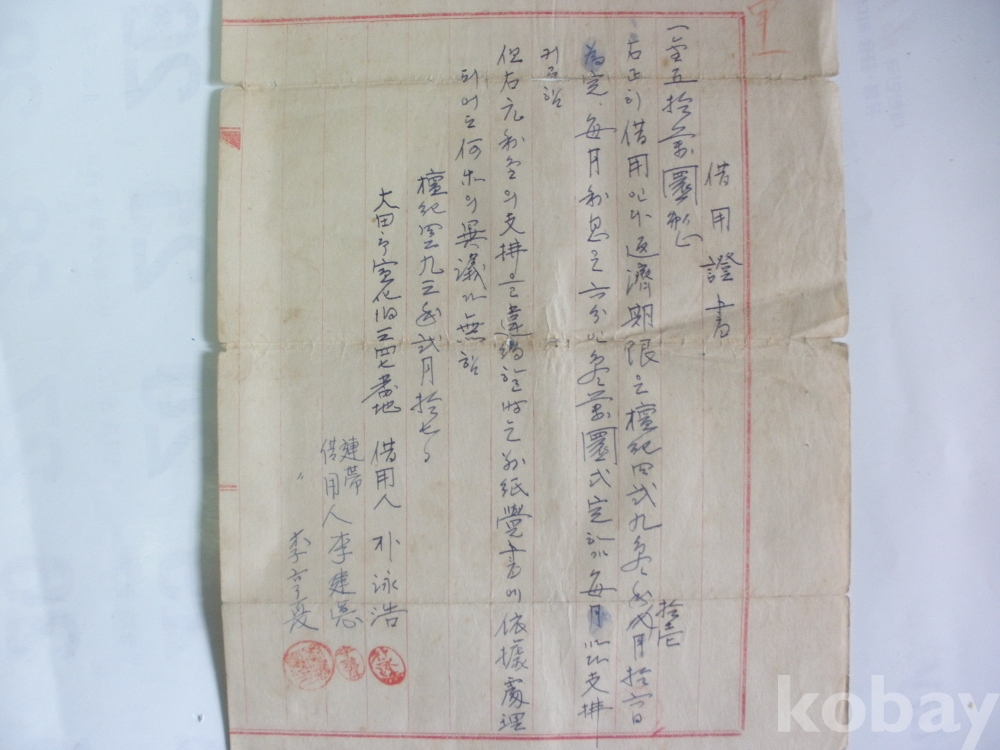 借用證書
一金五拾萬圜整
右正히 借用인바 返濟期限은 檀紀四貳九參年拾壹月拾六日
為定、每月利息은 六分인 參萬圜式定하고 每月 支拂
키로함
但右元利金의 支拂을 違約할 時는 別紙覺書에 依據 處理
되어도 何等의 異議가 無함
檀紀四貳九三年貳月拾七日
大田市宣化洞三四七番地 借用人 朴泳浩
連帶
借用人 李建
〃 李
kobay